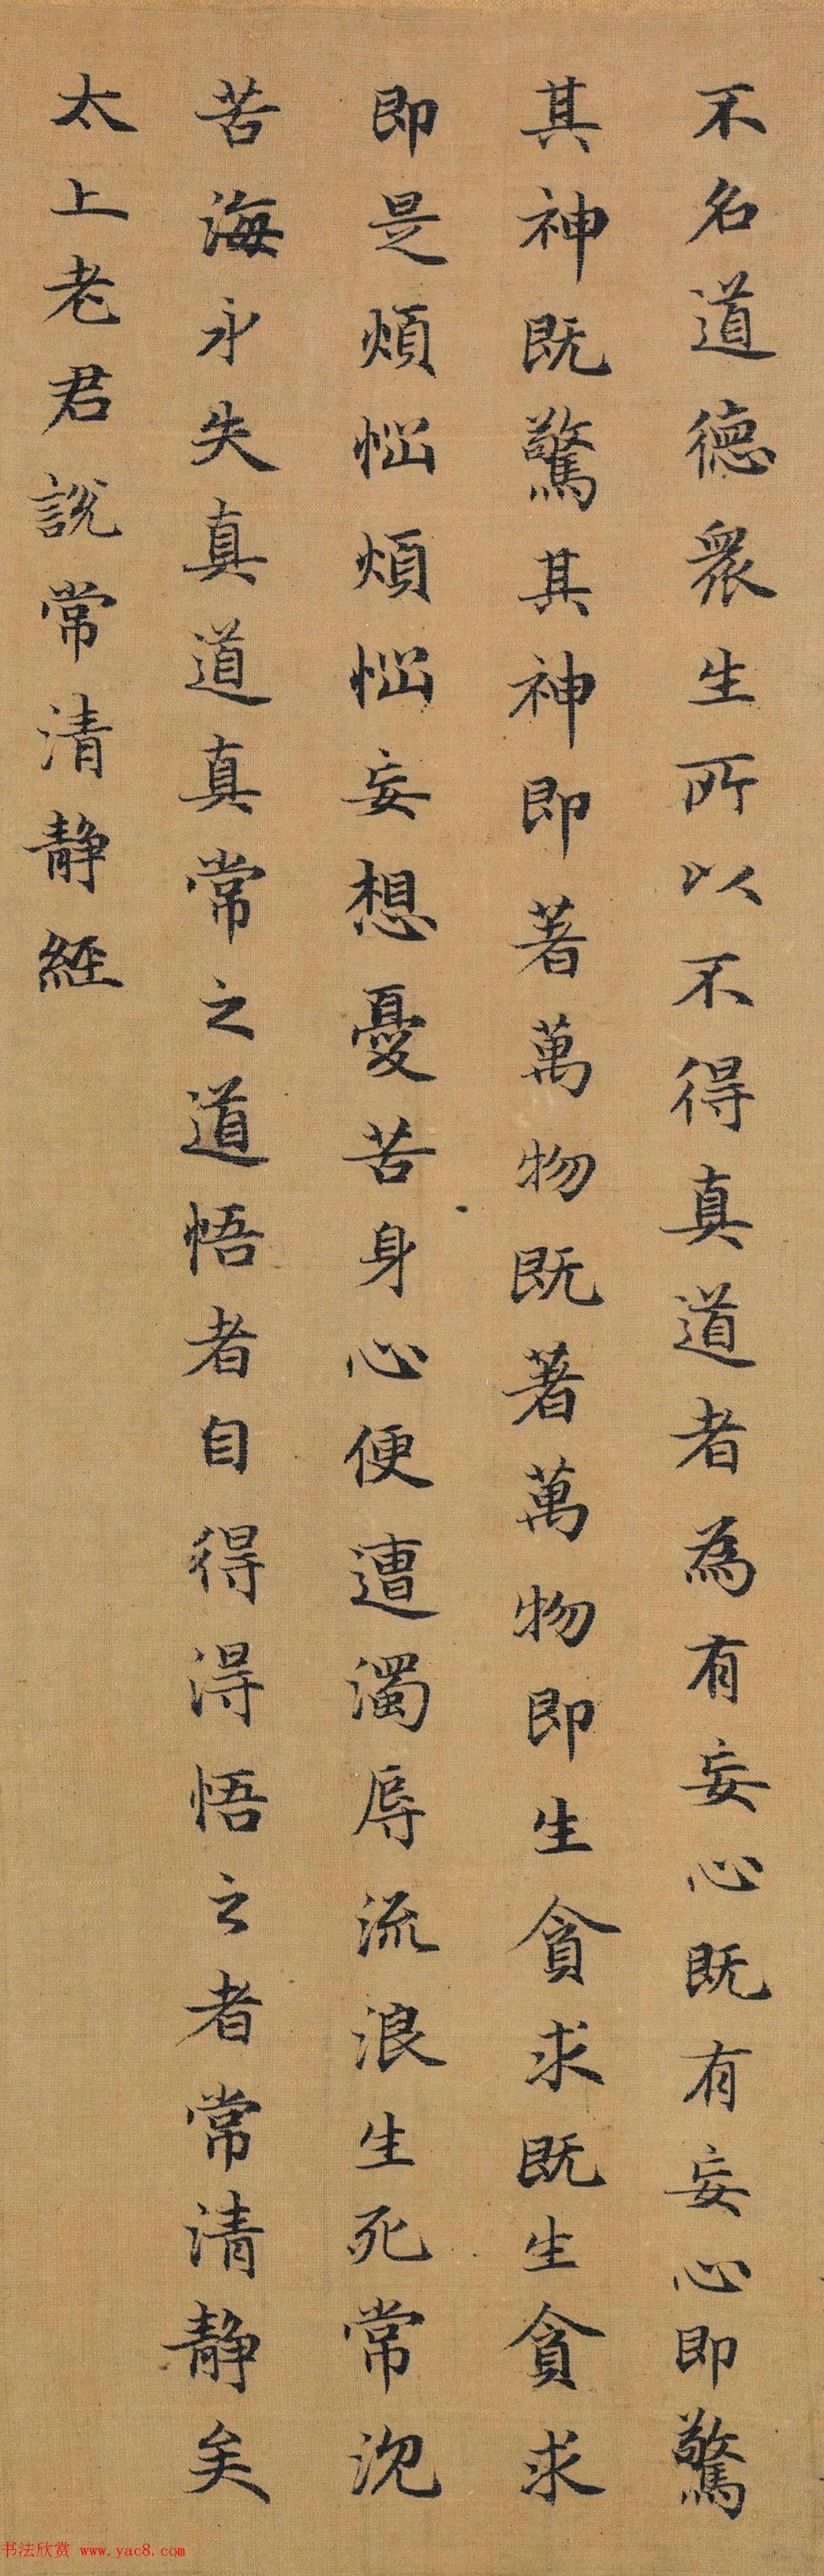 不名道德眾生所以不得真道者為有妄心既有妄心即驚
其神既驚其神即著萬物既著萬物即生貪求既生貪求
即是煩惱煩惱妄想憂苦身心便遭濁辱流浪生死常沉
苦海永失真道真常之道悟者自得得悟之者常清靜矣
太上老君說常清靜經
书法欣赏 www.yac8.com